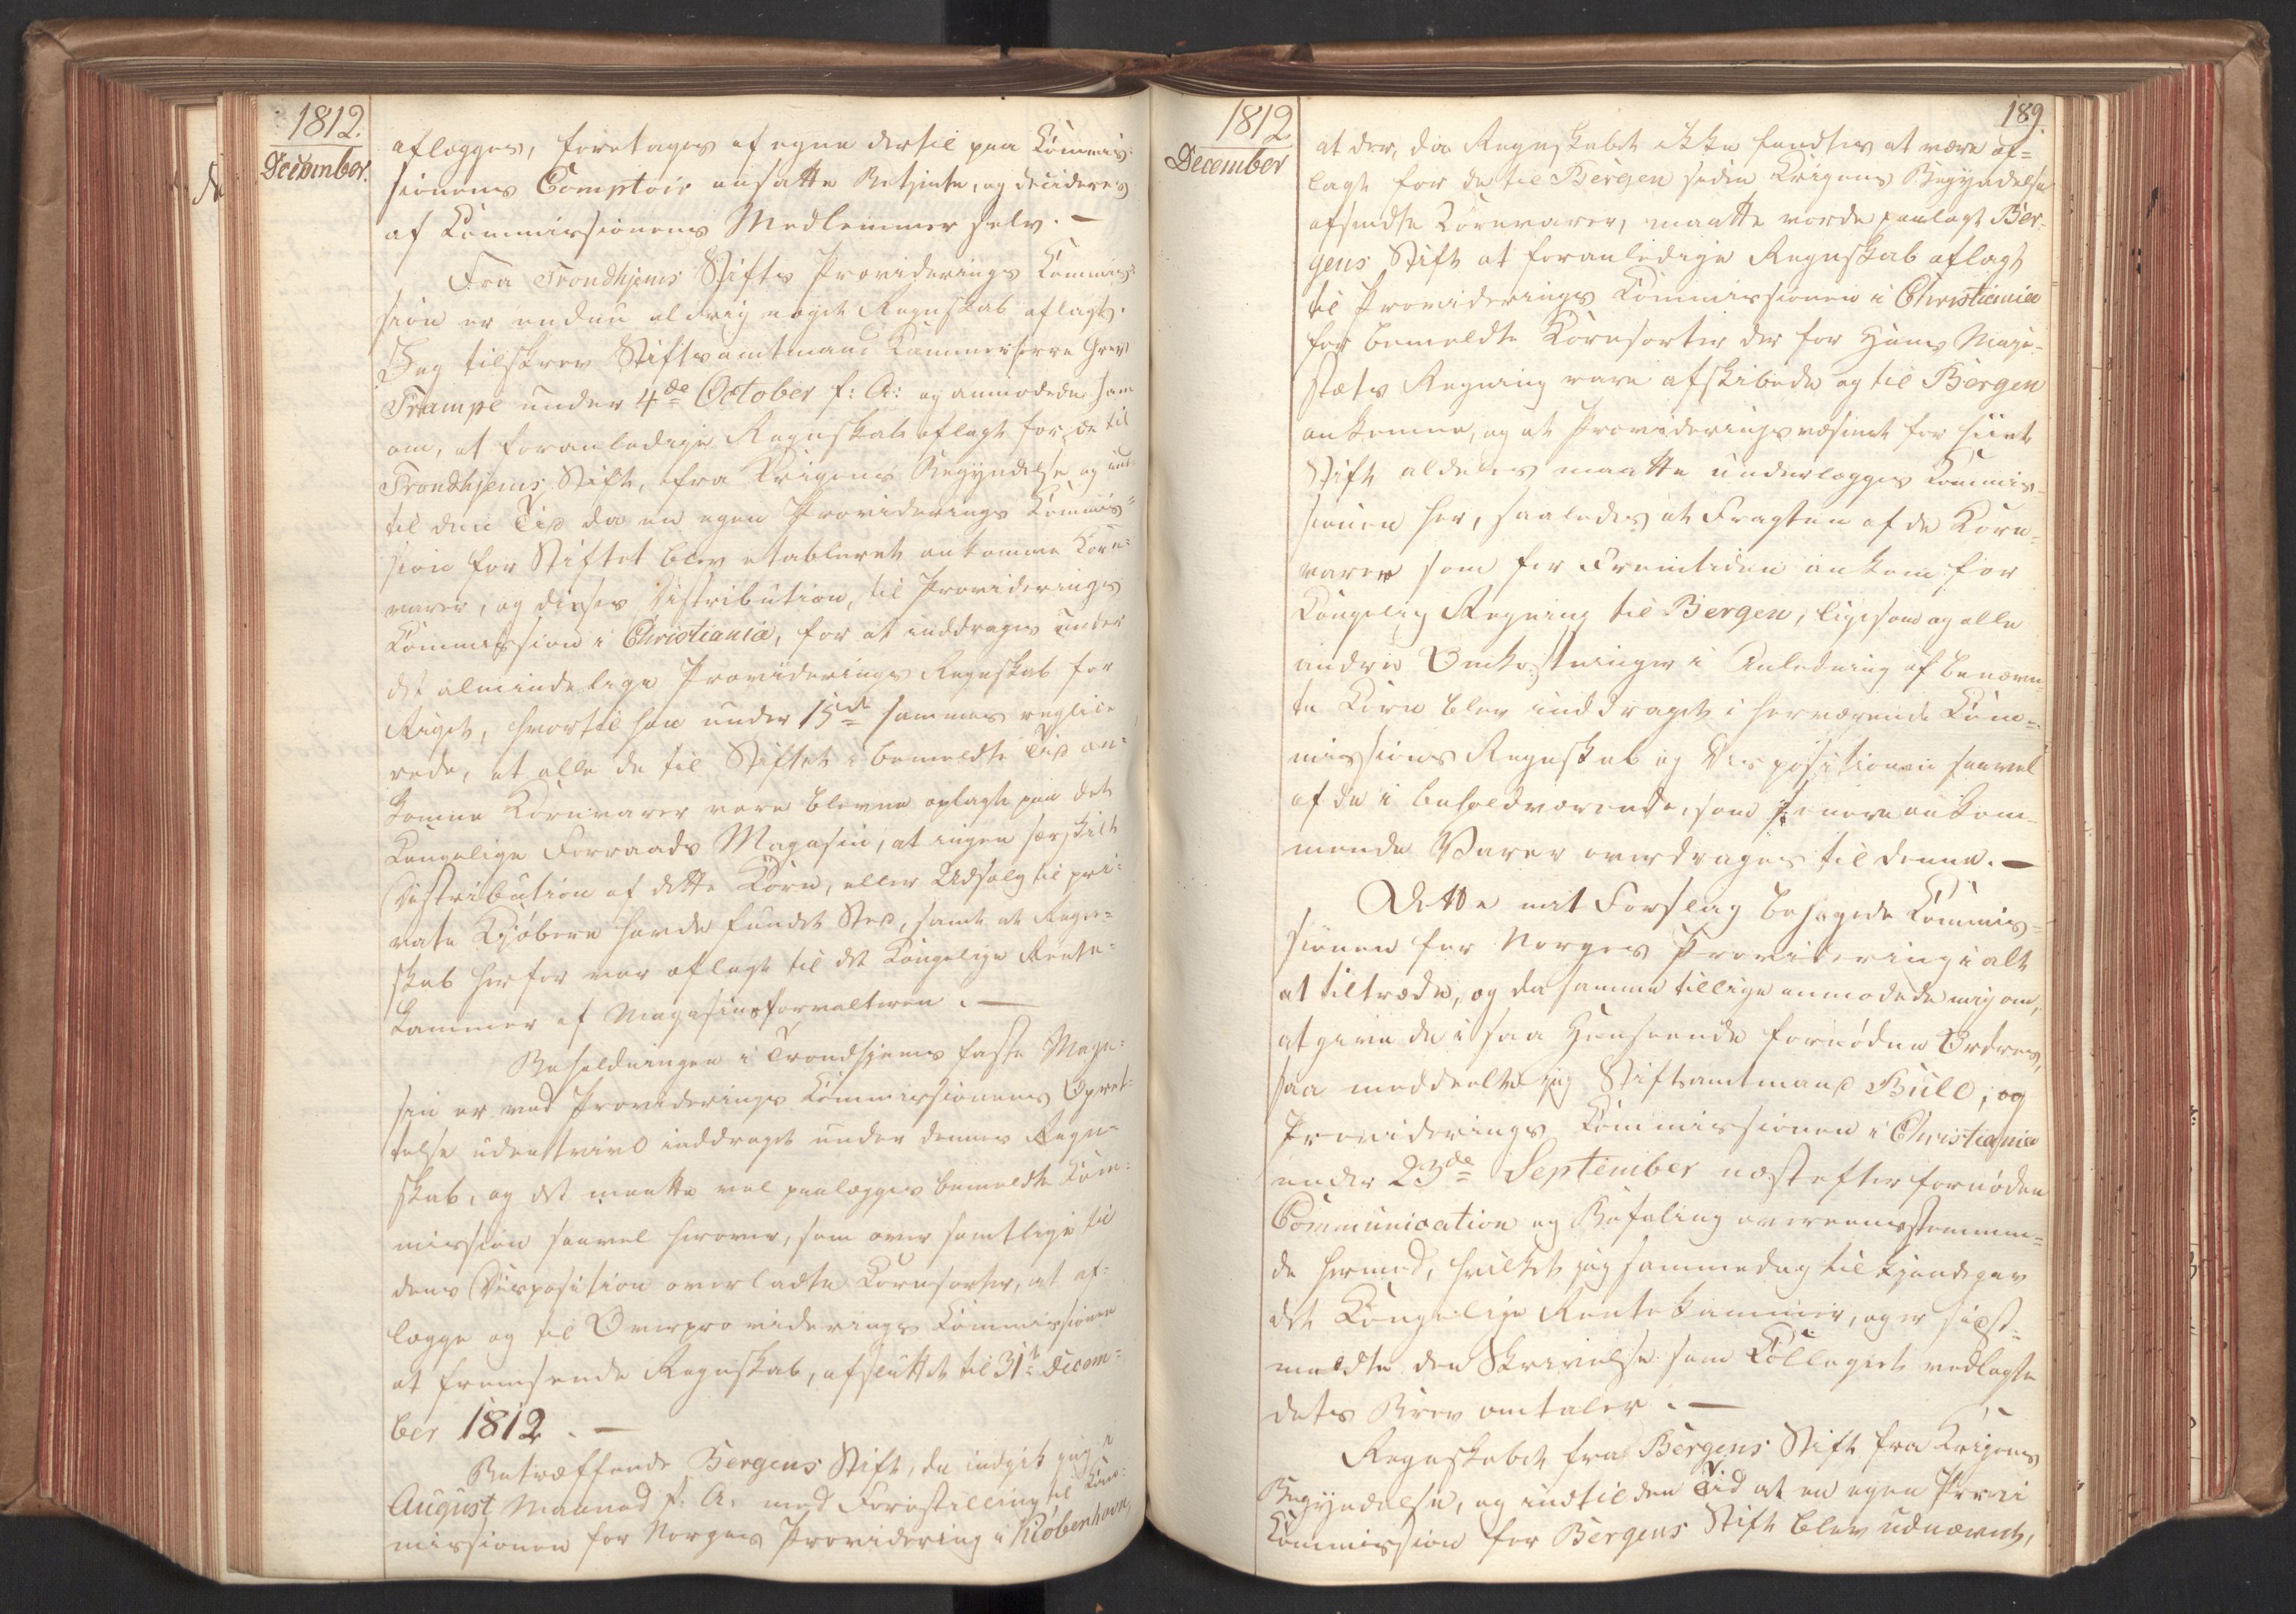 1812.
December.
aflægges, foretages af egne dertil paa Kommis-
sionens Comptoir ansatte Betjente, og decideres
af Kommissionens Medlemmer selv. —
Fra Trondhjems Stifts Providerings Kommis-
sion er endnu aldrig noget Regnskab aflagt.
Jeg tilskrev Stiftsamtmand Kammerherre Grev
Trampe under 4de October f: A: og anmodede ham
om, at foranledige Regnskab aflagt for de til
Trondhjems Stift, fra Krigens Begyndelse og ind-
til den Tid da en egen Providerings Kommis-
sion for Stiftet blev etableret ankomne Korn-
varer, og disses Distribution, til Providerings
Kommission i Christiania, for at inddrages under
det almindelige Providerings Regnskab for
Riget, hvortil han under 15de sammes replice
rede, at alle de til Stiftet i bemeldte Tid an-
komne Kornvarer vare blevne oplagte paa det
Kongelige Forraads Magasin, at ingen særskilt
Distribution af dette Korn, eller Udsalg til pri-
vate Kjøbere havde fundet Sted, samt at Regn-
skab herfor var aflagt til det Kongelige Rente-
kammer af Magasinsforvalteren. —
Beholdningen i Trondhjems faste Maga-
sin er ved Providerings Kommissionens Opret-
telse udentvivl inddraget under dennes Regn-
skab, og det maatte vel paalægges bemeldte Kom-
mission saavel herover, som over samtlige til
dens Disposition overladte Kornsorter, at af-
lægge og til Overproviderings Kommissionen
at fremsende Regnskab, afsluttet til 31te Decem-
ber 1812. —
Betræffende Bergens Stift, da indgik jeg i
August Maaned f: A. med Forestilling til Kom-
missionen for Norges Providering i Kiøbenhavn,
1812
December
189.
at der, da Regnskabet ikke fandtes at være af-
lagt for de til Bergen siden Krigens Begyndelse
afsendte Kornvarer, maatte vorde paalagt Ber-
gens Stift at foranledige Regnskab aflagt
til Providerings Kommissionen i Christiania
for bemeldte Kornsorter der for Hans Maje-
stæts Regning vare afskibede og til Bergen
ankomne, og at Provideringsvæsenet for hiint
Stift aldeles maatte underlægges Kommis-
sionen her, saaledes at Fragten af de Korn-
varer som for Fremtiden ankom for
Kongelig Regning til Bergen, ligesom og alle
andre Omkostninger i Anledning af benævn-
te Korn blev inddraget i herværende Kom-
missions Regnskab og Dispositionen saavel
af de i beholdværende, som senere ankom-
mende Varer overdrages til denne. —
Dette mit Forslag behagede Kommis-
sionen for Norges Providering i alt
at tiltræde, og da samme tillige anmodede mig om,
at give de i saa Henseende fornødne Ordres,
saa meddeelte jeg Stiftamtmand Bull, og
Providerings Kommissionen i Christiania
under 23de September næstefter fornøden
Communication og Befaling overeensstemmen-
de hermed, hvilket jeg sammedag tilkjendegav
det Kongelige Rentekammer, og er sidst-
meldte den Skrivelse som Collegiet vedlagte
dets Brev omtaler. —
Regnskabet fra Bergens Stift fra Krigens
Begyndelse, og indtil den Tid at en egen Provi
Kommission for Bergens Stift blev udnævnt,